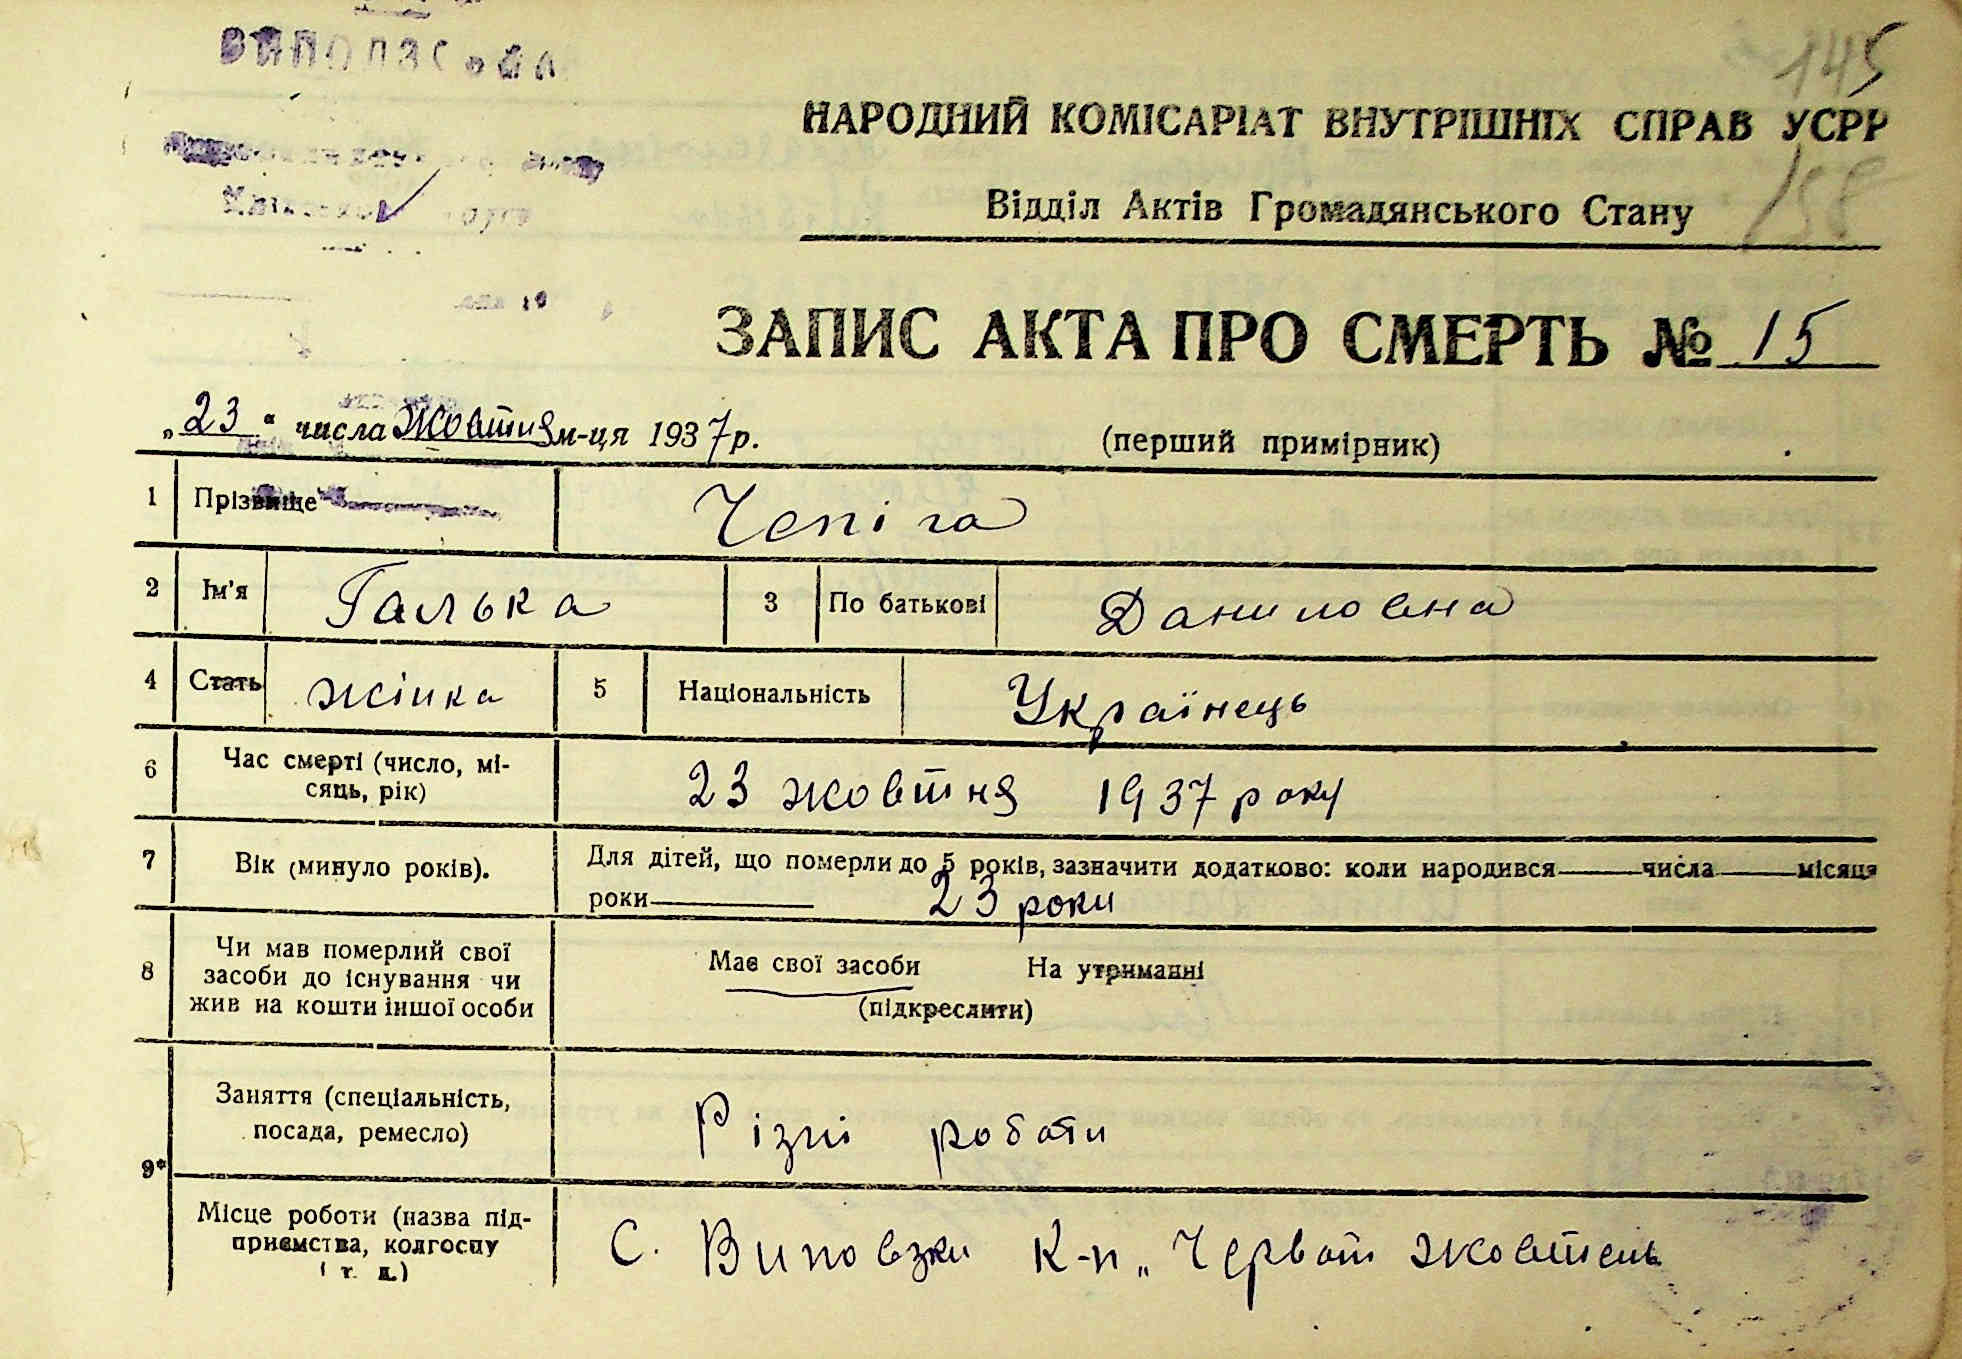 145
НАРОДНИЙ КОМІСАРІАТ ВНУТРІШНІХ СПРАВ УСРР
158
Відділ Актів Громадянського Стану
ЗАПИС АКТА ПРО СМЕРТЬ № 15
„23“ числа Жовтня м-ця 1937 р.
(перший примірник)
1 Прізвище Чепіга
2 Ім'я Галька 3 По батькові Даниловна
4 Стать жінка 5 Національність Українець
6 Час смерті (число, мі-
сяць, рік) 23 жовтня 1937 року
7 Вік (минуло років). Для дітей, що померли до 5 років, зазначити додатково: коли народився числа місяця
роки 23 роки
8 Чи мав померлий свої
засоби до існування чи
жив на кошти іншої особи
Має свої засоби На утриманні
(підкреслити)
9* Заняття (спеціальність,
посада, ремесло) Різні роботи
Місце роботи (назва під-
приємства, колгоспу
і т. д.) С. Виповзки К-п „Черв жовтень